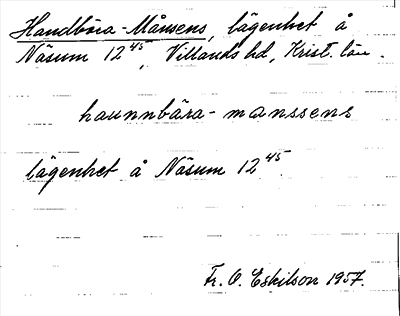 Handbära-Månsens, lägenhet å
Näsum 12⁴⁵, Villands hd, Krist. län.
haunnbära-manssens
lägenhet å Näsum 12⁴⁵.
Fr. O. Eskilson 1957.